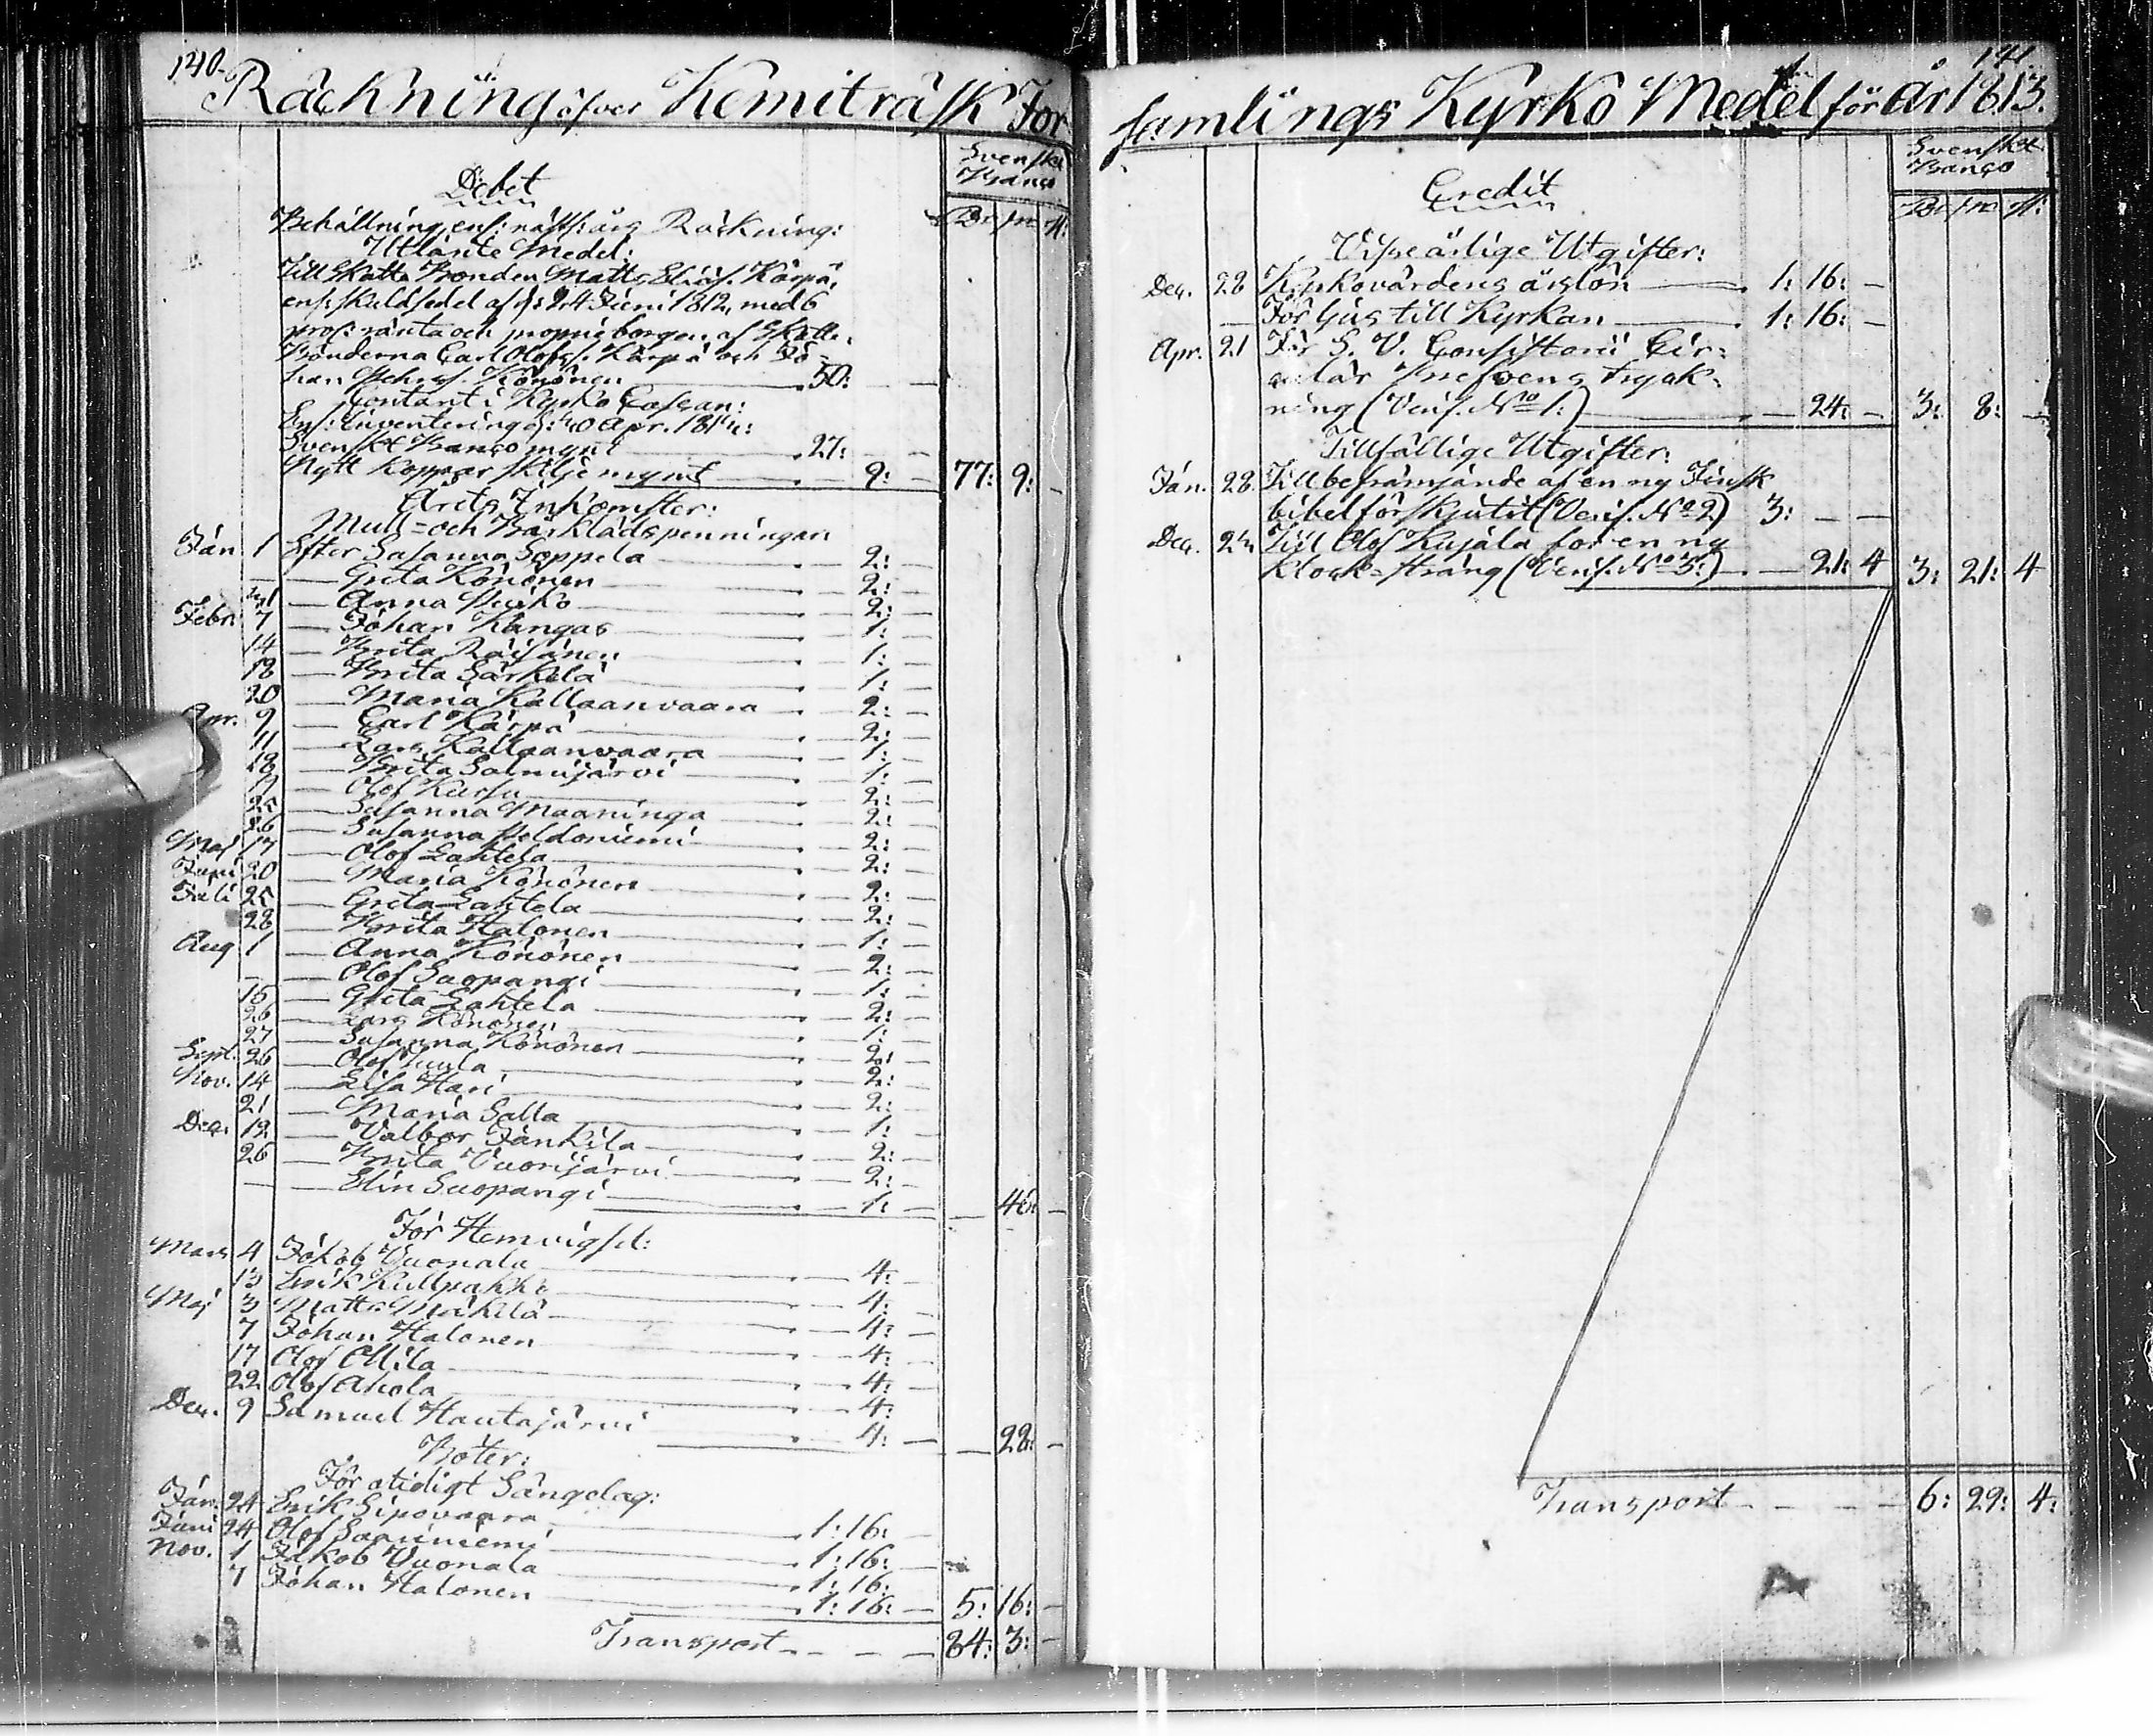 140.
Räckning öfver Kemiträsk För-
Debet
Svenska
Banco
Behållning enl: näst f: års Räckning:
Rd sk r:
Utlånte Medel:
Till Skatte Bonden Matts Eliæs. Kärpä,
enl: skuldsedel af d: 24 Juni 1812, med 6
proC: ränta och proprie borgen af Skatte-
Bönderna Carl Olofss. Kärpä och Jo-
han Pehrss. Könönen 50: — —
Contant i Kyrko Cassan:
Enl: Inventering d: Apr. 181
Svenskt Banco mynt 27: — —
Nytt Koppar skilje mynt — 9: — 77: 9: —
Årets Inkomster:
Mull- och Bårklädspenningar:
Jan. 1 Efter Susanna Soppela — 2: —
— — Greta Könönen — 2: —
— Anna — 2: —
Febr. 7 — Johan Kangas — 1: —
14 — Brita Räisänen — 1: —
18 — Brita Särkelä — 1: —
20 — Maria Kallaanvaara — 2: —
Apr. 9 — Carl Kärpä — 2: —
11 — Lars Kallaanvaara — 1: —
18 — Brita Salmijärvi — 1: —
— Olof Kursu — 2: —
25 — Susanna Maaninga — 2: —
26 — Susanna Peldoniemi — 2: —
Maj 17 — Olof Lahtela — 2: —
Juni 20 — Maria Könönen — 2: —
Juli 25 — Greta Lahtela — 2: —
28 — Brita Halonen — 1: —
Aug. 1 — Anna Könönen — 2: —
— — Olof Suopangi — 1: —
15 — Greta Lahtela — 2: —
26 — Lars Könönen — 1: —
27 — Susanna Könönen — 2: —
Sept. 26 — Olof — 2: —
Nov. 14 — Elsa Hari — 2: —
21 — Maria Salla — 1: —
Dec. 12 — Valbor Jänkilä — 2: —
26 — Brita Vuorijärvi — 2: —
— — Elin Suopangi — 1: — — 46: —
För Hemvigsel:
Mars 4 Jakob Vuonala — 4: —
13 Erik Kullpakko — 4: —
Maj 3 Matts Mäkelä — 4: —
7 Johan Halonen — 4: —
17 Olof Ollila — 4: —
22 Olof Ahola — 4: —
Dec. 9 Samuel Hautajärvi — 4: — — 28: —
Böter:
För otidigt Sängelag:
Jan. 24 Erik Sipovaara 1: 16: —
Juni 24 Olof Saariniemi 1: 16: —
Nov. 1 Jakob Vuonala 1: 16: —
7 Johan Halonen 1: 16: — 5: 16: —
Transport — — — 84: 3: —
141.
samlings Kyrko Medel för år 1813.
Credit
Svenskt
Banco
Rd sk r:
Visse årlige Utgifter:
Dec. 28 Kyrkovärdens årslön 1: 16: —
— För ljus till Kyrkan 1: 16: —
Apr. 21 För S. V. Consistorii Cir-
culär Brefvens tryck-
ning (Verif. No 1:) — 24: — 3: 8: —
Tillfällige Utgifter:
Jan. 28. Till befrämjande af en ny Finsk
bibel förskjutit (Verif. No 2) 3: — —
Dec. 24. Till Olof Kujala för en ny
klock-sträng (Verif. No 3:) — 21: 4 3: 21: 4
Transport — — — 6: 29: 4: